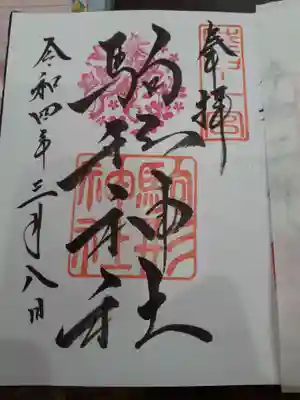 奉拝
駒形神社
駒形神社
令和四年三月八日